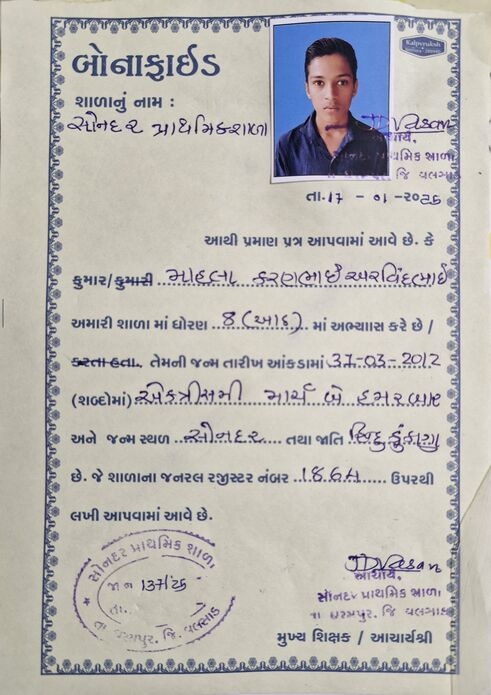 બોનાફાઈડ
Kalpvruksh
શાળાનું નામ :
સોનદર પ્રાથમિકશાળા
JDVasan
આચાર્ય,
સોનદર પ્રાથમિક શાળા
તા ધરમપુર, જિ વલસાડ
તા.17 - 01 -૨૦૨૬
આથી પ્રમાણ પત્ર આપવામાં આવે છે. કે
કુમાર/કુમારી માહલા કરણભાઈ અરવિંદભાઈ
અમારી શાળા માં ધોરણ 8 (આઠ) માં અભ્યાસ કરે છે /
કરતા હતા. તેમની જન્મ તારીખ આંકડામાં 31-03-2012
(શબ્દોમાં) એકત્રીસમી માર્ચ બે હજાર બાર
અને જન્મ સ્થળ સોનદર તથા જાતિ હિંદુ કુંકણા
છે. જે શાળાના જનરલ રજીસ્ટર નંબર 1864 ઉપરથી
લખી આપવામાં આવે છે.
સોનદર પ્રાથમિક શાળા
જા નં 137/26
તા.
તા. ધરમપુર. જિ. વલસાડ
JDVasan
આચાર્ય,
સોનદર પ્રાથમિક શાળા
તા ધરમપુર, જિ વલસાડ
મુખ્ય શિક્ષક / આચાર્યશ્રી